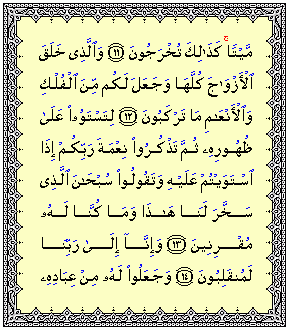 مَّيْتًا ۚ كَذَٰلِكَ تُخْرَجُونَ ﴿١١﴾ وَٱلَّذِى خَلَقَ
ٱلْأَزْوَٰجَ كُلَّهَا وَجَعَلَ لَكُم مِّنَ ٱلْفُلْكِ
وَٱلْأَنْعَٰمِ مَا تَرْكَبُونَ ﴿١٢﴾ لِتَسْتَوُۥا۟ عَلَىٰ
ظُهُورِهِۦ ثُمَّ تَذْكُرُوا۟ نِعْمَةَ رَبِّكُمْ إِذَا
ٱسْتَوَيْتُمْ عَلَيْهِ وَتَقُولُوا۟ سُبْحَٰنَ ٱلَّذِى
سَخَّرَ لَنَا هَٰذَا وَمَا كُنَّا لَهُۥ
مُقْرِنِينَ ﴿١٣﴾ وَإِنَّآ إِلَىٰ رَبِّنَا
لَمُنقَلِبُونَ ﴿١٤﴾ وَجَعَلُوا۟ لَهُۥ مِنْ عِبَادِهِۦ